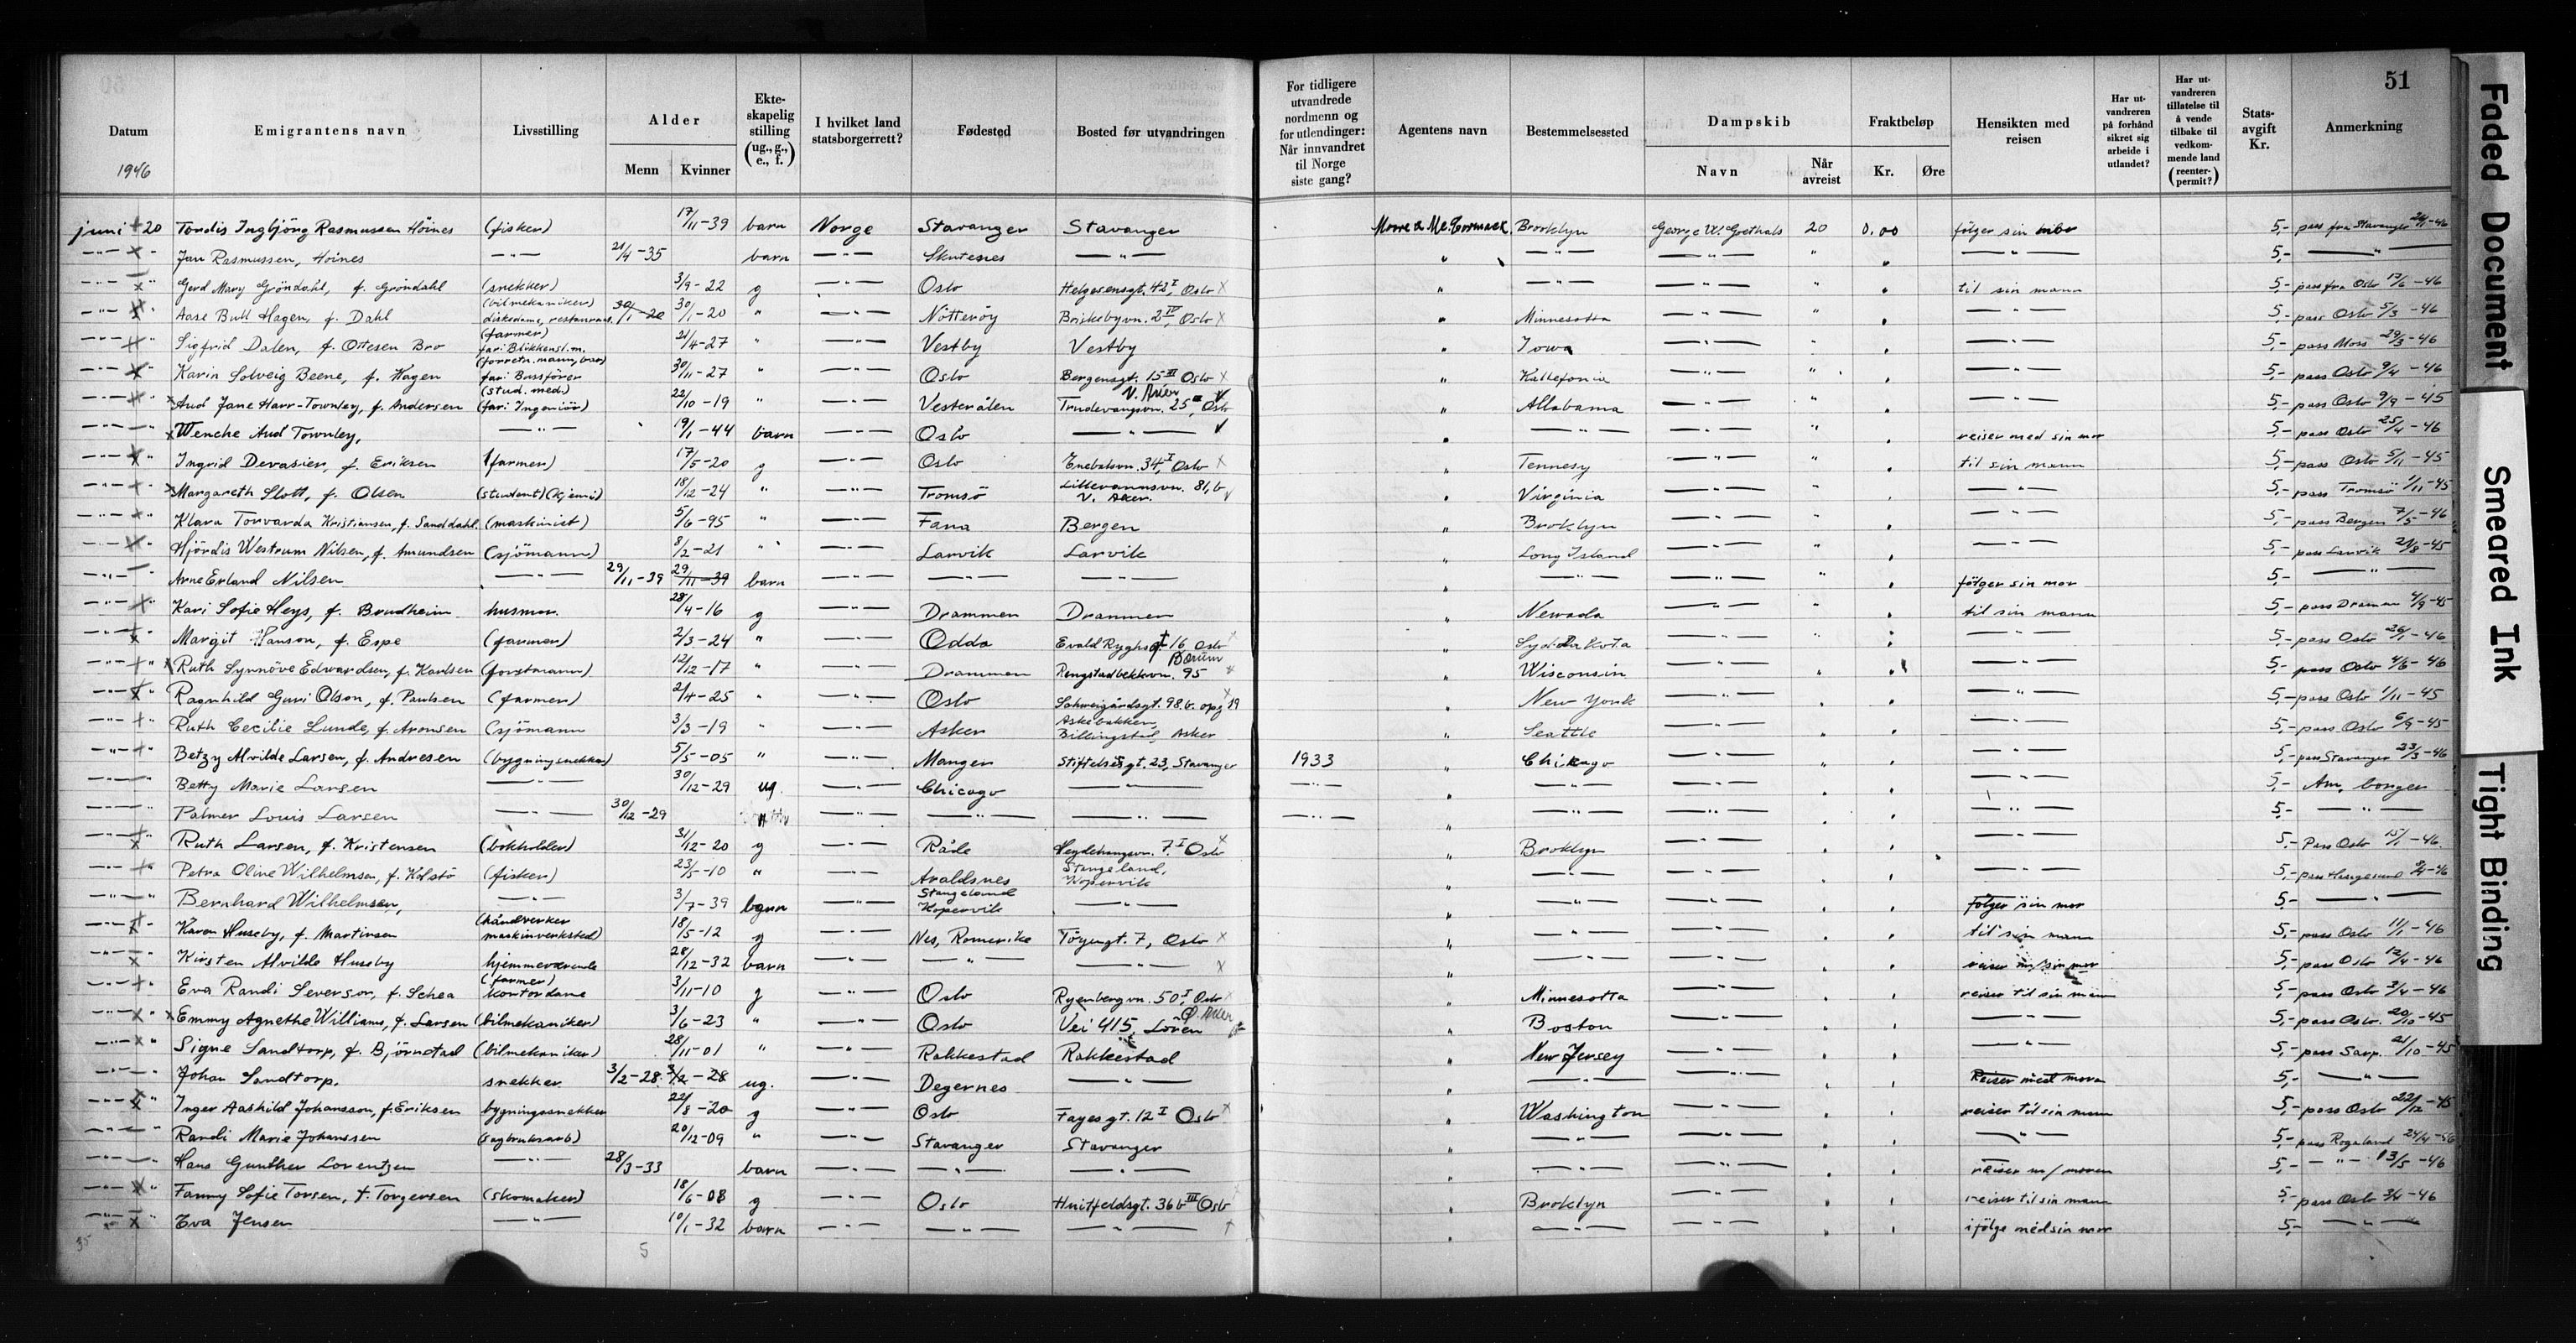 51
Datum 1946 | Emigrantens navn | Livsstilling | Alder Menn Kvinner | Ekte- skapelig stilling (ug., g., e., f.) | I hvilket land statsborgerrett? | Fødested | Bosted før utvandringen | For tidligere utvandrede nordmenn og for utlendinger: Når innvandret til Norge siste gang? | Agentens navn | Bestemmelsessted | Dampskib Navn Når avreist | Fraktbeløp Kr. Øre | Hensikten med reisen | Har ut- vandreren på forhånd sikret sig arbeide i utlandet? | Har ut- vandreren tillatelse til å vende tilbake til vedkom- mende land (reenter- permit?) | Stats- avgift Kr. | Anmerkning
juni 20 Tordis Ingbjörg Rasmussen Höines (fisker) 17/11-39 barn Norge Stavanger Stavanger Moore & Mc.Cormack Brooklyn George W. Goethals 20 0,00 følger sin mor 5,- pass fra Stavanger
-"- Jan Rasmussen, Höines -"- 21/4-35 barn -"- Skutenes -"- " -"- -"- " " -"- 5,- -"-
-"- Gerd Mary Gröndahl, f. Gröndahl (snekker) 3/9-22 g -"- Oslo Helgesensgt. 42 I, Oslo x " -"- -"- " " til sin mann 5,- pass fra Oslo 17/6-46
-"- Aase Bull Hagen, f. Dahl (bilmekaniker) diskedame, restaurant. 30/1-20 30/1-20 " -"- Nötteröy Briskebyvn. 2 IV, Oslo x " Minnesotta -"- " " -"- 5,- pass Oslo 5/3-46
-"- Sigfrid Dalen, f. Ottesen Bro (farmer) fari Blikkensl.m. 21/4-27 " -"- Vestby Vestby " Iowa -"- " " -"- 5,- pass Moss 29/3-46
-"- Karin Solveig Beene, f. Hagen (forretn.mann, bar) fari Bussförer 30/11-27 " -"- Oslo Bergensgt. 15 III Oslo x " Kallefonia -"- " " -"- 5,- pass Oslo 9/4-46
-"- x Aud Jane Harr-Townley, f. Andersen (stud. med.) (fari Ingeniör) 22/10-19 " -"- Vesterålen Trudevangsvn. 25, V. Aker Oslo " Allabama -"- " " -"- 5,- pass Oslo 9/9-45
-"- x Wenche Aud Townley, -"- 19/1-44 barn -"- Oslo -"- " -"- -"- " " reiser med sin mor 5,- pass Oslo 25/4-46
-"- Ingrid Devasier, f. Eriksen (farmer) 17/5-20 g -"- Oslo Enebakvn. 34 I, Oslo x " Tennesy -"- " " til sin mann 5,- pass Oslo 5/11-45
-"- x Margareth Slott, f. Olsen (student) (kjemi) 18/12-24 " -"- Tromsö Lillevannsvn. 81,b V. Aker. " Virginia -"- " " -"- 5,- pass Tromsö 1/11-45
-"- Klara Torvarda Kristiansen, f. Sanddahl. (maskinist) 5/6-95 " -"- Fana Bergen " Broklyn -"- " " -"- 5,- pass Bergen 7/5-46
-"- Hjördis Westrum Nilsen, f. Amundsen (sjömann) 8/2-21 " -"- Larvik Larvik " Long Island -"- " " -"- 5,- pass Larvik 21/8-45
-"- Arne Erland Nilsen -"- 29/11-39 29/11-39 barn -"- -"- -"- " -"- -"- " " følger sin mor 5,- -"-
-"- Kari Sofie Heys, f. Brudheim husmor. 28/4-16 g -"- Drammen Drammen " Newada -"- " " til sin mann 5,- pass Drammen 4/9-45
-"- Margit Hanson, f. Espe (farmer) 2/3-24 " -"- Odda Evald Ryghsgt 16 Oslo " Syddakota -"- " " -"- 5,- pass Oslo 26/1-46
-"- x Ruth Synnöve Edwardsen, f. Karlsen (forstmann) 12/12-17 " -"- Drammen Ringstadbekkvn. 95 Bærum " Wisconsin -"- " " -"- 5,- pass Oslo 4/6-46
-"- Ragnhild Guri Olson, f. Paulsen (farmer) 2/4-25 " -"- Oslo Schweigårdsgt. 98.b. opg 19 " New York -"- " " -"- 5,- pass Oslo 1/11-45
-"- Ruth Cecilie Lunde, f. Aronsen (sjömann 3/3-19 " -"- Asker Askebakken, Billingstad, Asker " Seattle -"- " " -"- 5,- pass Oslo 6/9-45
-"- Betzy Alvilde Larsen, f. Andresen (bygningsnekker) 5/5-05 " -"- Manger Stiftelsesgt. 23, Stavanger 1933 " Chikago -"- " " -"- 5,- pass Stavanger 23/3-46
-"- Betty Marie Larsen -"- 30/12-29 ug. -"- Chicago -"- -"- " -"- -"- " " -"- 5,- Am. borger
-"- Palmer Louis Larsen -"- 30/12-29 " -"- -"- -"- -"- " -"- -"- " " -"- 5,- -"-
-"- Ruth Larsen, f. Kristensen (bokholder) 31/12-20 g -"- Råde Heydehaugsvn. 7. I Oslo x " Broklyn -"- " " -"- 5,- Pass Oslo 15/1-46.
-"- Petra Oline Wilhelmsen, f. Kolstö (fisker) 23/5-10 " -"- Avaldsnes Stangeland, Kopervik " -"- -"- " " -"- 5,- pass Haugesund
-"- Bernhard Wilhelmsen, -"- 3/7-39 barn -"- Stangeland Kopervik -"- " -"- -"- " " Følger sin mor 5,- -"-
-"- Karen Huseby, f. Martinsen (håndverker maskinverksted) 18/5-12 g -"- Nes, Romerike Töyengt. 7, Oslo x " -"- -"- " " til sin mann 5,- pass Oslo 11/1-46
-"- Kirsten Alvilde Huseby hjemmeværende 28/12-32 barn -"- -"- -"- x " -"- -"- " " reiser m/sin mor 5,- pass Oslo 12/4-46
-"- Eva Randi Severson, f. Schea (farmer) kontordame 3/11-10 g -"- Oslo Ryenbergvn. 50 I, Oslo " Minnesotta -"- " " reiser til sin mann 5,- pass Oslo 3/4-46
-"- x Emmy Agnethe Williams, f. Larsen (bilmekaniker) 3/6-23 " -"- Oslo Vei 415, Lören Ø. Aker " Boston -"- " " -"- 5,- pass Oslo. 20/10-45
-"- Signe Sandtorp, f. Björnstad (bilmekaniker) 28/11-01 " -"- Rakkestad Rakkestad " New Jersey -"- " " -"- 5,- pass Sarp. 21/10-45
-"- Johan Sandtorp. snekker 3/2-28. 3/2-28 ug. -"- Degernes -"- " -"- -"- " " Reiser med moren 5,- -"-
-"- Inger Aashild Johansson, f. Eriksen bygningssnekker 22/8-20 g -"- Oslo Fayesgt. 12 I Oslo x " Washington -"- " " reiser til sin mann 5,- pass Oslo 22/12-45
-"- Randi Marie Johanssen (sagbruksarb) 20/12-09 " -"- Stavanger Stavanger " -"- -"- " " -"- 5,- pass Rogaland 24/4-46
-"- Hans Gunther Lorentzen -"- 28/3-33 barn -"- -"- -"- " -"- -"- " " reiser m/moren 5,- -"- 13/5-46
-"- Fanny Sofie Torsen, f. Torgersen (skomaker) 18/6-08 g -"- Oslo Huitfeldsgt. 36 b III Oslo " Broklyn -"- " " reiser til sin mann 5,- pass Oslo 3/4-46
-"- Eva Jensen -"- 10/1-32 barn -"- -"- -"- " -"- -"- " " i følge med sin mor 5,- -"-
35 5
Faded Document
Smeared Ink
Tight Binding